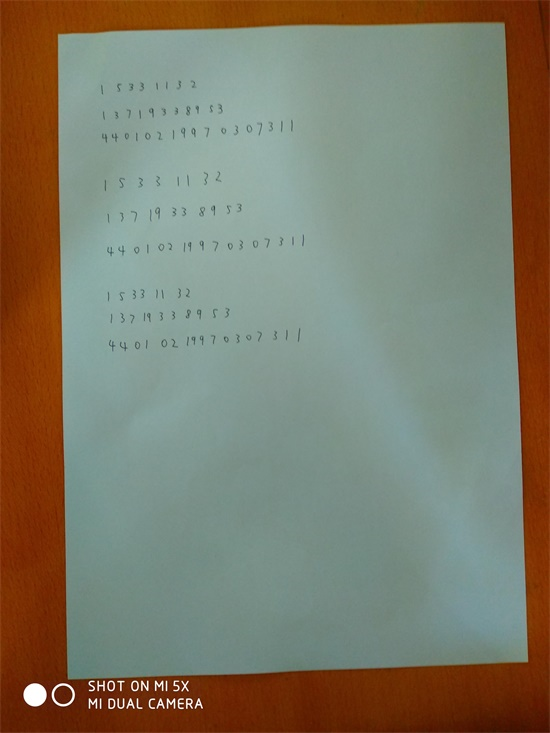 1 5 3 3 1 1 3 2
1 3 7 1 9 3 3 8 9 5 3
4 4 0 1 0 2 1 9 9 7 0 3 0 7 3 1 1
1 5 3 3 11 3 2
1 3 7 19 33 8 9 5 3
4 4 0 1 02 19 9 7 0 3 0 7 3 1 1
1 5 33 11 32
1 37 19 3 3 8 9 5 3
4 4 0 1 02 1997 0 3 0 7 3 1 1
SHOT ON MI 5X
MI DUAL CAMERA